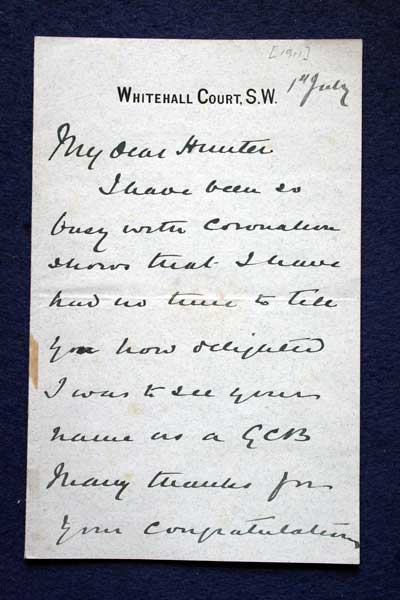 [1911]
WHITEHALL COURT, S.W.
1st July
My dear Hunter
I have been so
busy with Coronation
shows that I have
had no time to tell
you how delighted
I was to see your
name as a GCB
Many thanks for
your congratulations